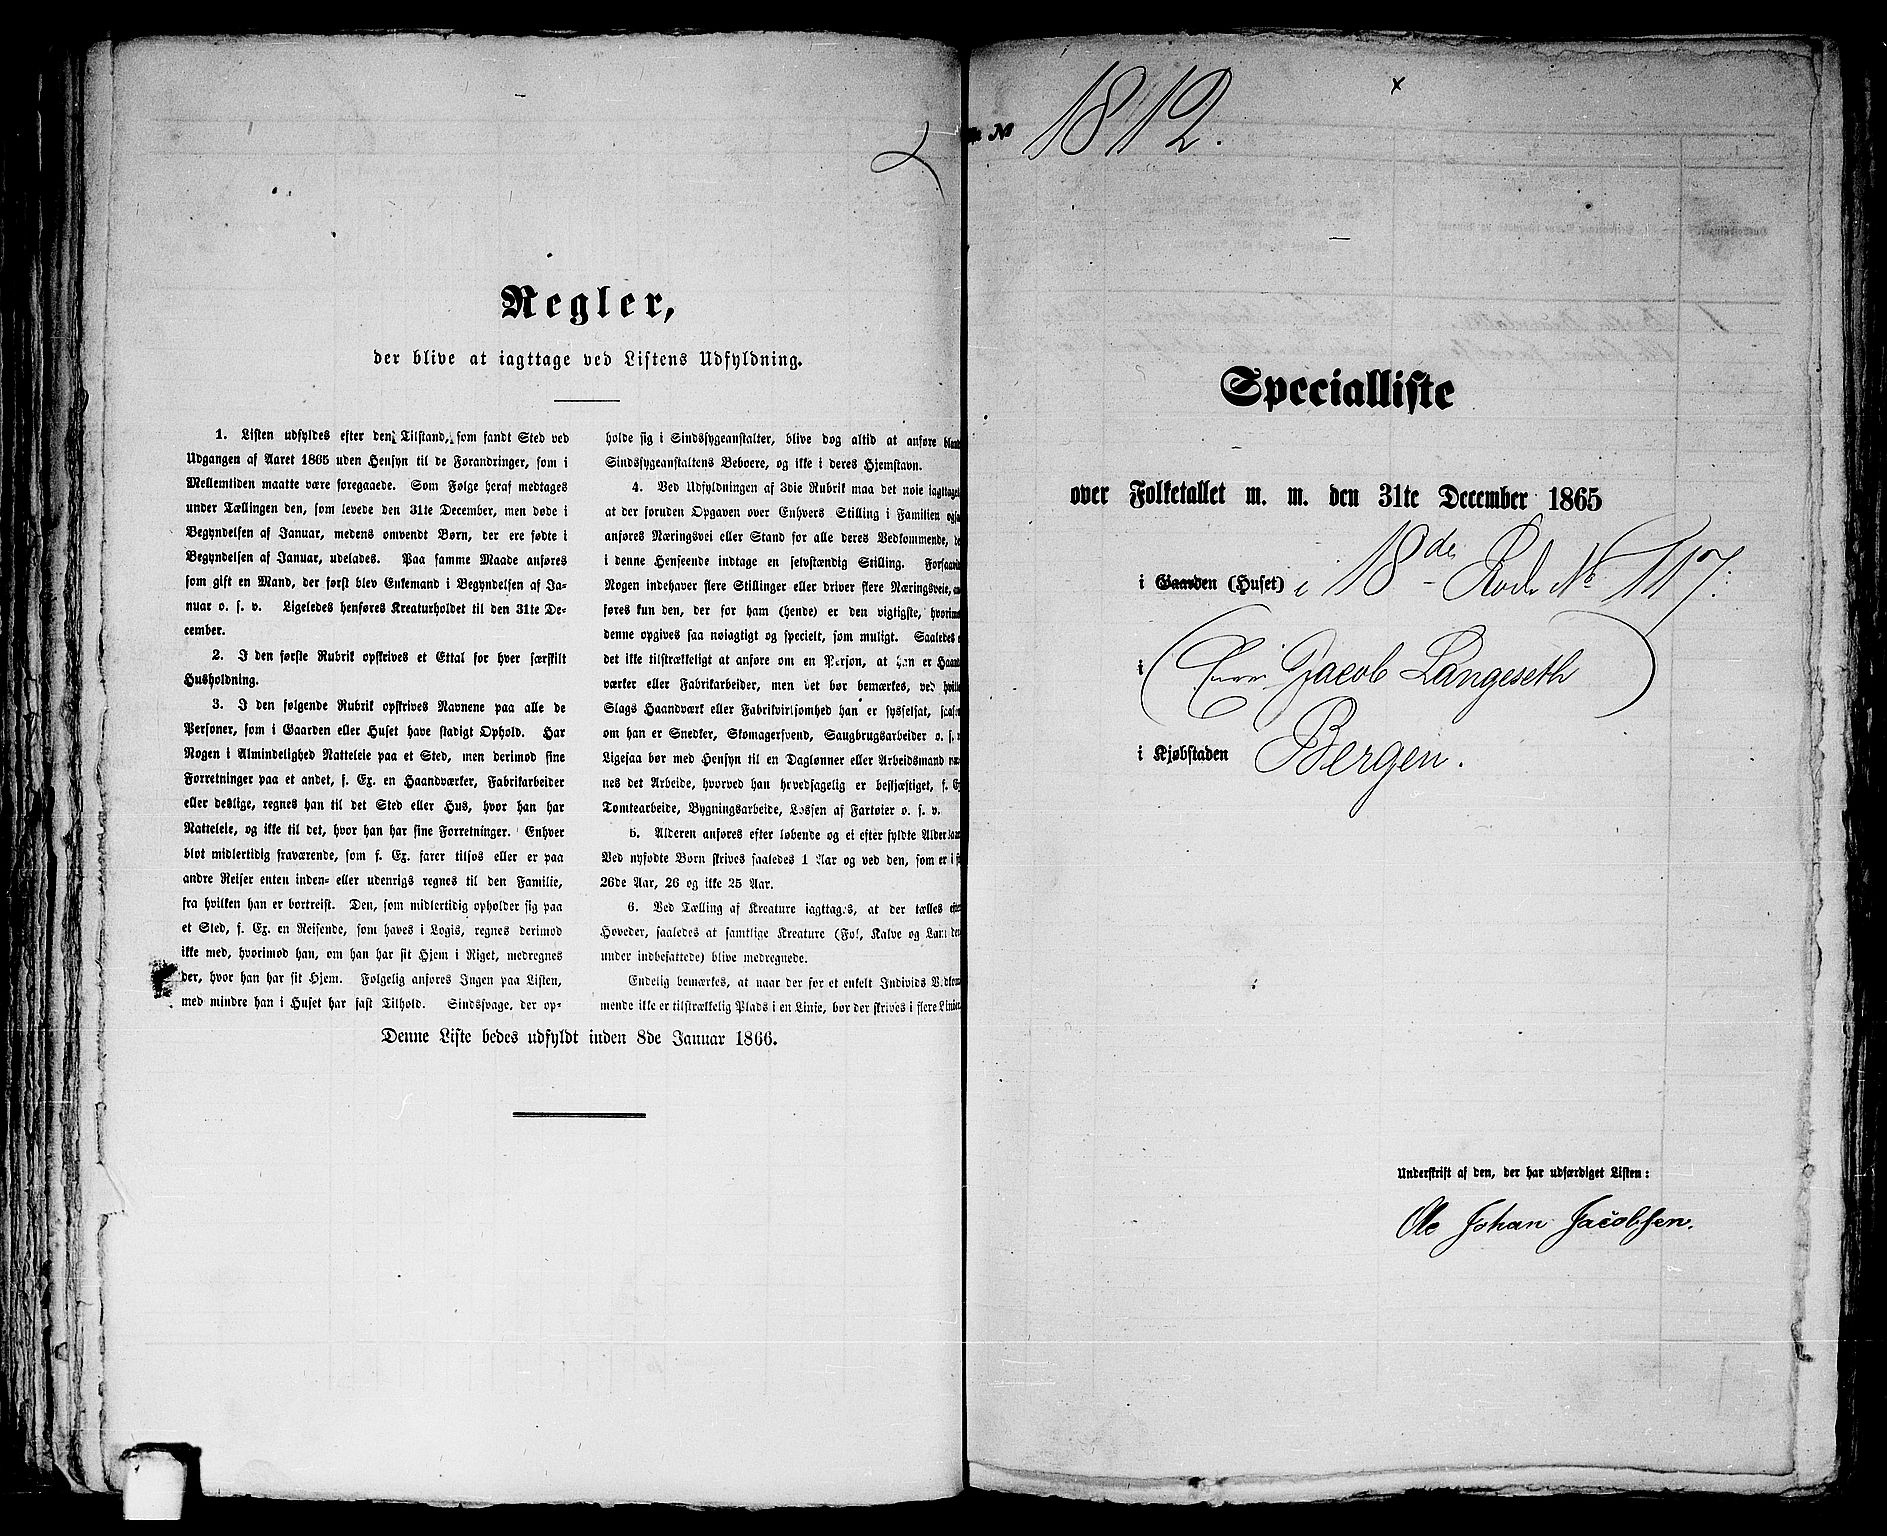 Regler,
der blive at iagttage ved Listens Udfyldning.
1. Listen udfyldes efter den Tilstand, som fandt Sted ved
Udgangen af Aaret 1865 uden Hensyn til de Forandringer, som i
Mellemtiden maatte være foregaaede. Som Følge heraf medtages
under Tællingen den, som levede den 31te December, men døde i
Begyndelsen af Januar, medens omvendt Børn, der ere fødte i
Begyndelsen af Januar, udelades. Paa samme Maade anføres
som gift en Mand, der først blev Enkemand i Begyndelsen af Ja-
nuar o. s. v. Ligeledes henføres Kreaturholdet til den 31te De-
cember.
2. I den første Rubrik opskrives et Ettal for hver særskilt
Husholdning.
3. I den følgende Rubrik opskrives Navnene paa alle de
Personer, som i Gaarden eller Huset have stadigt Ophold. Har
Nogen i Almindelighed Natteleie paa et Sted, men derimod sine
Forretninger paa et andet, f. Ex. en Haandværker, Fabrikarbeider
eller deslige, regnes han til det Sted eller Hus, hvor han har
Natteleie, og ikke til det, hvor han har sine Forretninger. Enhver
blot midlertidig fraværende, som f. Ex. farer tilsøs eller er paa
andre Reiser enten inden- eller udenrigs regnes til den Familie,
fra hvilken han er bortreist. Den, som midlertidig opholder sig paa
et Sted, f. Ex. en Reisende, som haves i Logis, regnes derimod
ikke med, hvorimod han, om han har sit Hjem i Riget, medregnes
der, hvor han har sit Hjem. Følgelig anføres Ingen paa Listen,
med mindre han i Huset har fast Tilhold. Sindssvage, der op-
holde sig i Sindssygeanstalter, blive dog altid at anføre blandt
Sindssygeanstaltens Beboere, og ikke i deres Hjemstavn.
4. Ved Udfyldningen af 3die Rubrik maa det nøie iagttages,
at der foruden Opgaven over Enhvers Stilling i Familien ogsaa
anføres Næringsvei eller Stand for alle deres Vedkommende, de
i denne Henseende indtage en selvstændig Stilling. Forsaavidt
Nogen indehaver flere Stillinger eller driver flere Næringsveie, an-
føres kun den, der for ham (hende) er den vigtigste, hvorimod
denne opgives saa nøiagtigt og specielt, som muligt. Saaledes
det ikke tilstrækkeligt at anføre om en Person, at han er Haand-
værker eller Fabrikarbeider, men det bør bemærkes, ved hvilket
Slags Haandværk eller Fabrikvirksomhed han er sysselsat, saasom
om han er Snedker, Skomagersvend, Saugbrugsarbeider o. s. v.
Ligesaa bør med Hensyn til en Daglønner eller Arbeidsmand næv-
nes det Arbeide, hvorved han hovedsagelig er beskjæftiget, f. Ex.
Tomtearbeide, Bygningsarbeide, Lossen af Fartøier o. s. v.
5. Alderen anføres efter løbende og ei efter fyldte Aldersaar.
Ved nyfødte Børn skrives saaledes 1 Aar og ved den, som er i sit
26de Aar, 26 og ikke 25 Aar.
6. Ved Tælling af Kreature iagttages, at der tælles efter
Hoveder, saaledes at samtlige Kreature (Føl, Kalve og Lam der-
under indbefattede) blive medregnede.
Endelig bemærkes, at naar der for et enkelt Individs Vedkom-
mende ikke er tilstrækkelig Plads i en Linie, bør der skrives i flere Linier.
Denne Liste bedes udfyldt inden 8de Januar 1866.
№ 1812.
Specialliste
over Folketallet m. m. den 31te December 1865
i Gaarden (Huset) i 18de Rode No 117:
i ( Jacob Langeseth )
i Kjøbstaden Bergen.
Underskrift af den, der har udfærdiget Listen:
Ole Johan Jacobsen.